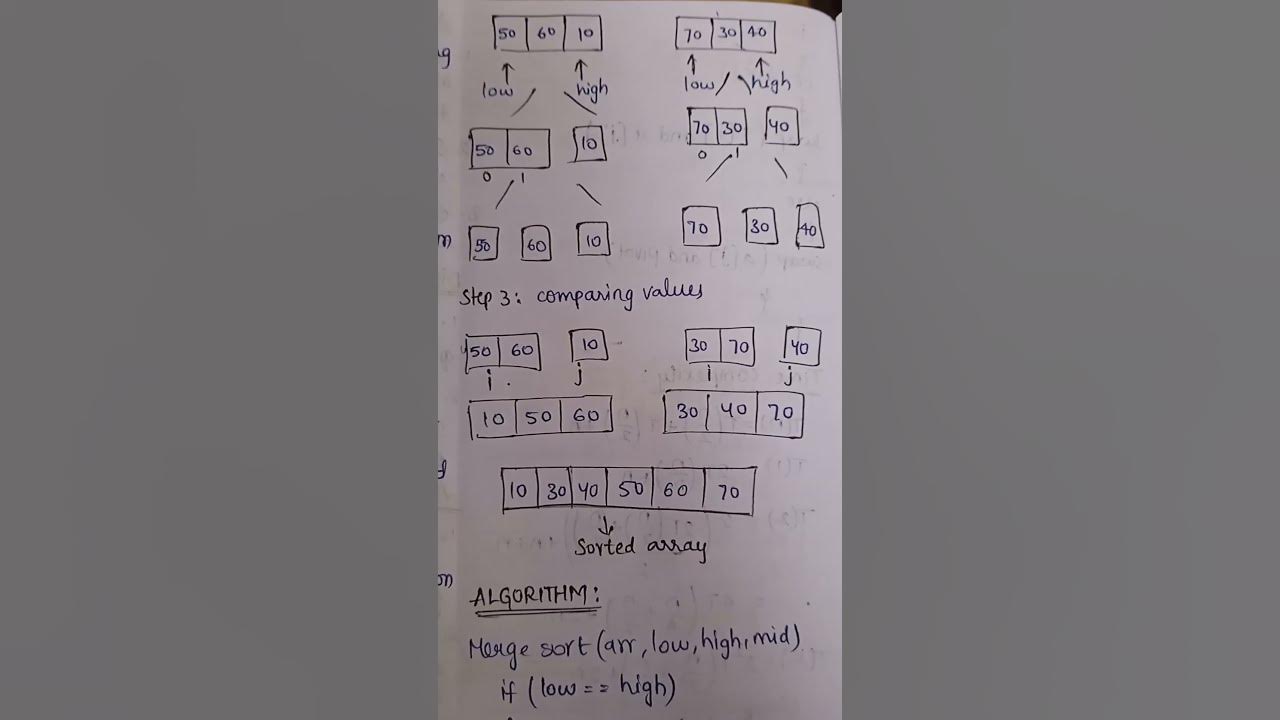 50 60 10 70 30 40
low high low high
50 60 10 70 30 40
0 1 0 1
50 60 10 70 30 40
Step 3: comparing values
50 60 10 30 70 40
i j i j
10 50 60 30 40 70
10 30 40 50 60 70
Sorted array
ALGORITHM:
Merge sort (arr, low, high, mid)
if (low == high)